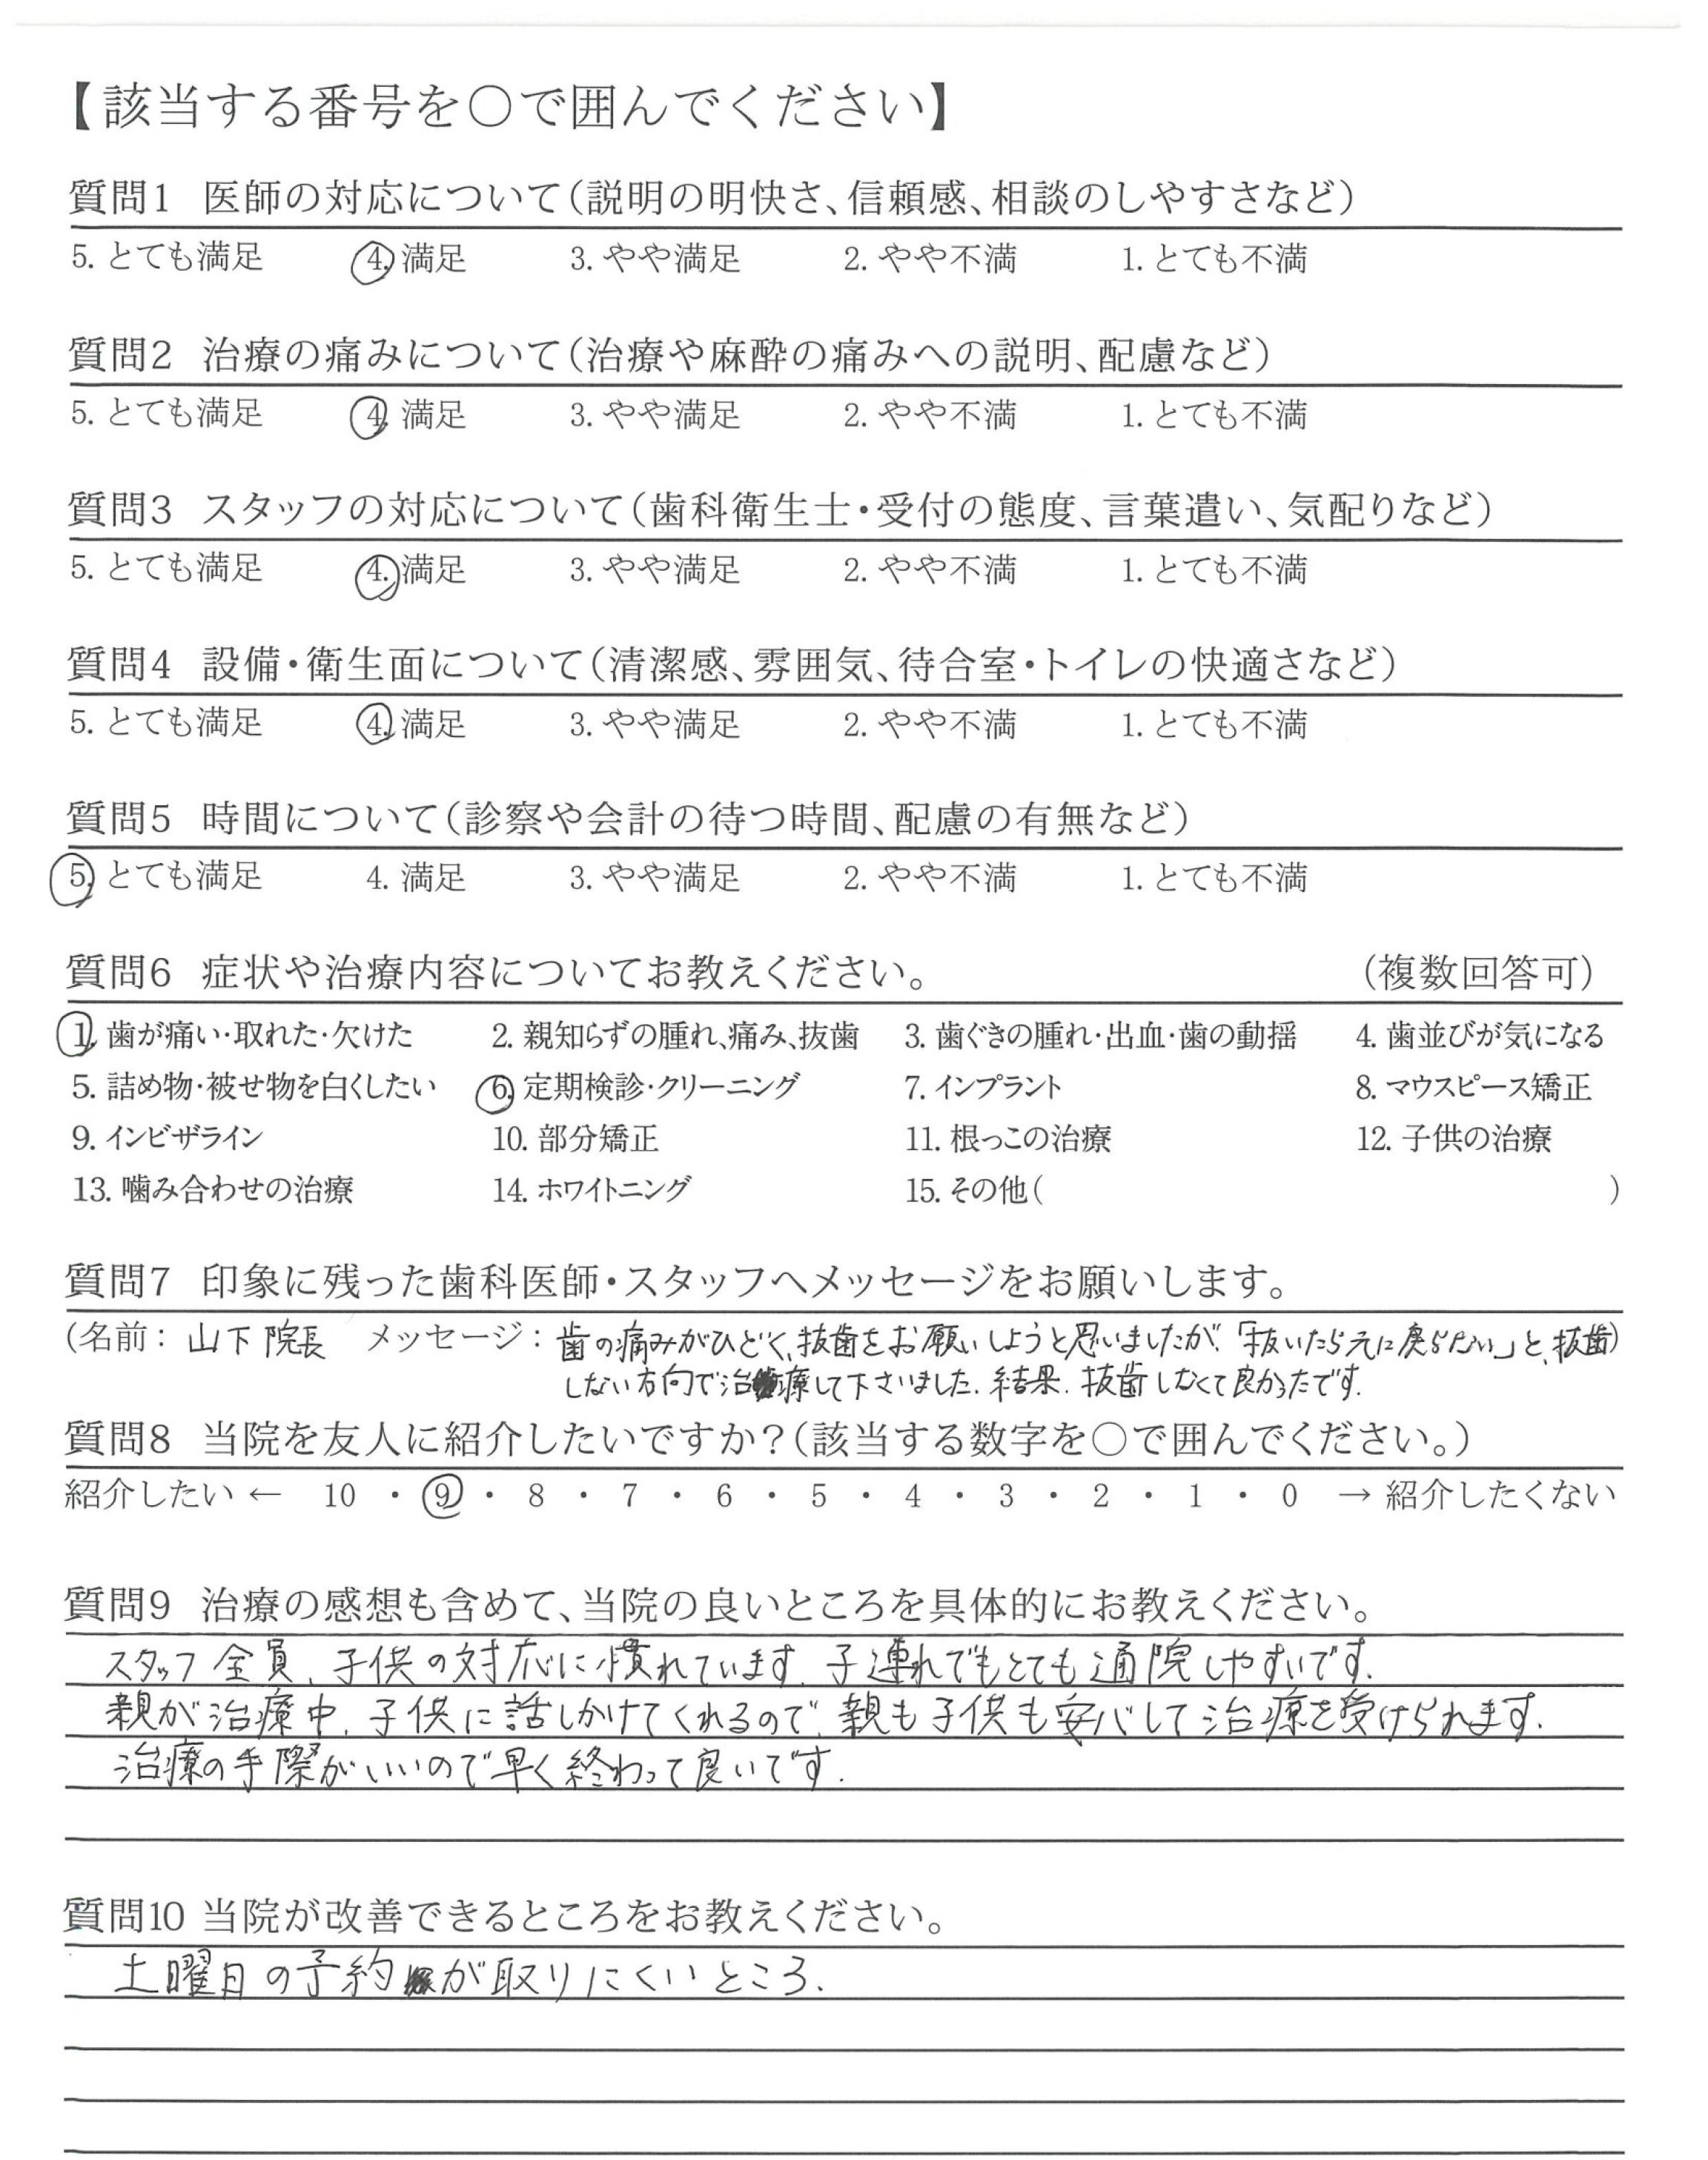 【該当する番号を○で囲んでください】
質問1 医師の対応について(説明の明快さ、信頼感、相談のしやすさなど)
5. とても満足 4. 満足 3. やや満足 2. やや不満 1. とても不満
質問2 治療の痛みについて(治療や麻酔の痛みへの説明、配慮など)
5. とても満足 4. 満足 3. やや満足 2. やや不満 1. とても不満
質問3 スタッフの対応について(歯科衛生士・受付の態度、言葉遣い、気配りなど)
5. とても満足 4. 満足 3. やや満足 2. やや不満 1. とても不満
質問4 設備・衛生面について(清潔感、雰囲気、待合室・トイレの快適さなど)
5. とても満足 4. 満足 3. やや満足 2. やや不満 1. とても不満
質問5 時間について(診察や会計の待つ時間、配慮の有無など)
5. とても満足 4. 満足 3. やや満足 2. やや不満 1. とても不満
質問6 症状や治療内容についてお教えください。 (複数回答可)
1. 歯が痛い・取れた・欠けた 2. 親知らずの腫れ、痛み、抜歯 3. 歯ぐきの腫れ・出血・歯の動揺 4. 歯並びが気になる
5. 詰め物・被せ物を白くしたい 6. 定期検診・クリーニング 7. インプラント 8. マウスピース矯正
9. インビザライン 10. 部分矯正 11. 根っこの治療 12. 子供の治療
13. 噛み合わせの治療 14. ホワイトニング 15. その他( )
質問7 印象に残った歯科医師・スタッフへメッセージをお願いします。
(名前: 山下院長 メッセージ: 歯の痛みがひどく、抜歯をお願いしようと思いましたが、「抜いたら元に戻らない」と、抜歯)
しない方向で治療して下さいました。結果、抜歯しなくて良かったです。
質問8 当院を友人に紹介したいですか?(該当する数字を○で囲んでください。)
紹介したい ← 10 ・ 9 ・ 8 ・ 7 ・ 6 ・ 5 ・ 4 ・ 3 ・ 2 ・ 1 ・ 0 → 紹介したくない
質問9 治療の感想も含めて、当院の良いところを具体的にお教えください。
スタッフ全員、子供の対応に慣れています。子連れでもとても通院しやすいです。
親が治療中、子供に話しかけてくれるので、親も子供も安心して治療を受けられます。
治療の手際がいいので早く終わって良いです。
質問10 当院が改善できるところをお教えください。
土曜日の予約が取りにくいところ。